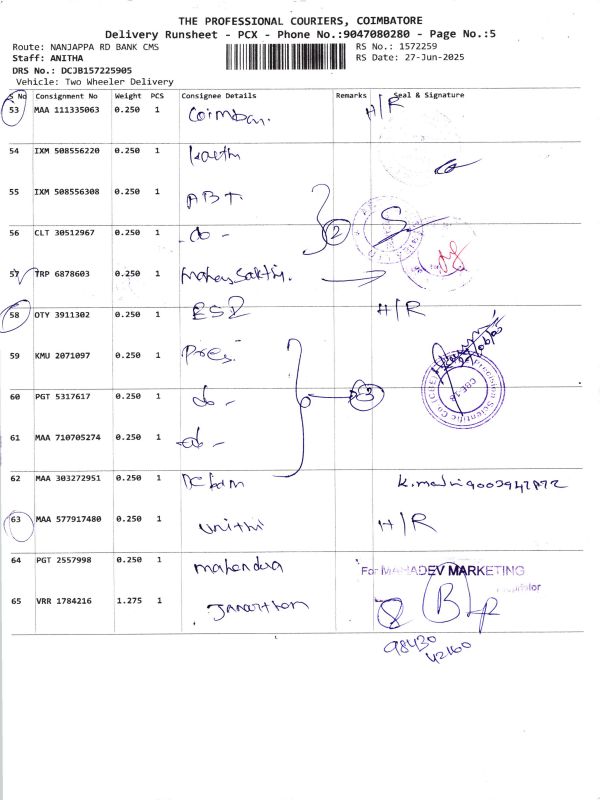 THE PROFESSIONAL COURIERS, COIMBATORE
Delivery Runsheet - PCX - Phone No.:9047080280 - Page No.:5
Route: NANJAPPA RD BANK CMS RS No.: 1572259
Staff: ANITHA RS Date: 27-Jun-2025
DRS No.: DCJB157225905
Vehicle: Two Wheeler Delivery
S No Consignment No Weight PCS Consignee Details Remarks Seal & Signature
53 MAA 111335063 0.250 1 H/R
54 IXM 508556220 0.250 1
55 IXM 508556308 0.250 1 ABT
56 CLT 30512967 0.250 1 - do - 2
57 TRP 6878603 0.250 1
58 OTY 3911302 0.250 1 H/R
59 KMU 2071097 0.250 1
60 PGT 5317617 0.250 1 do - 3
61 MAA 710705274 0.250 1 - do -
62 MAA 303272951 0.250 1
63 MAA 577917480 0.250 1 H/R
64 PGT 2557998 0.250 1 mahendra For MAHADEV MARKETING
65 VRR 1784216 1.275 1
98430
42160